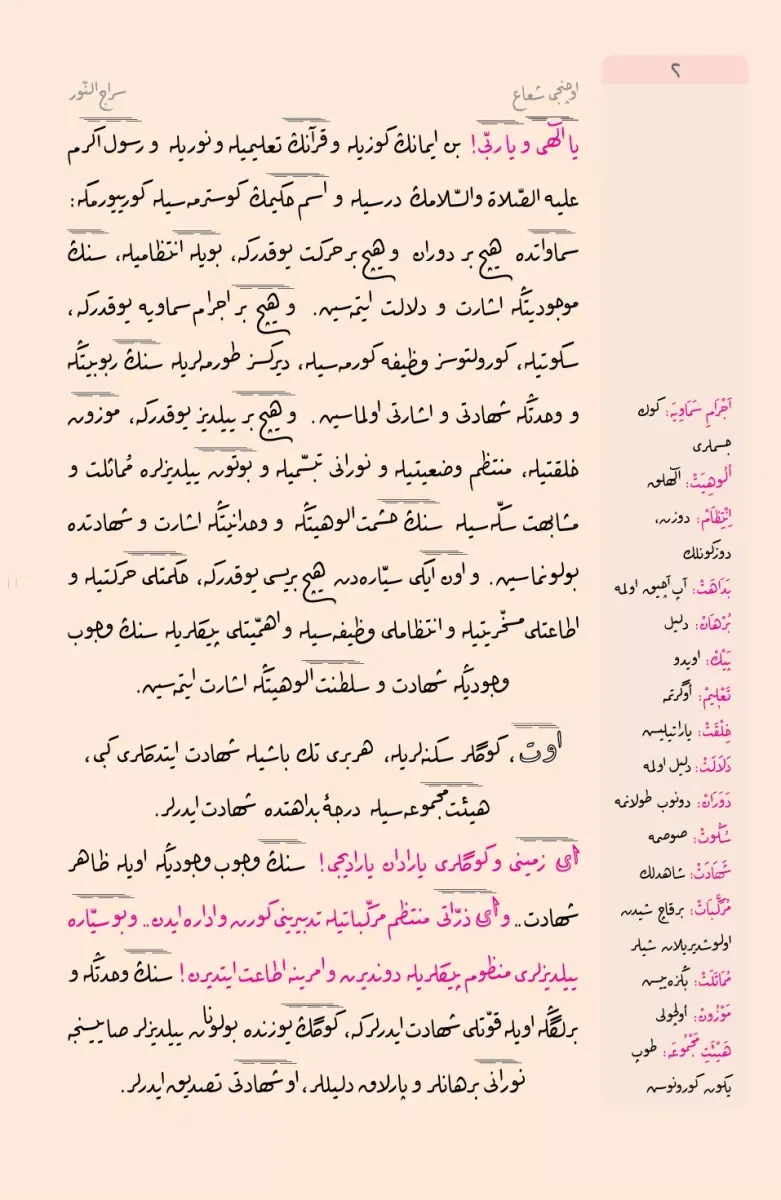 ٢
اوچنجی شعاع
سراج النّور
يا الٓهى و يا ربّى! بن ايمانڭ كوزيله و قرآنڭ تعليميله و نوريله و رسول اكرم
عليه الصّلاة والسّلامڭ درسيله و اسم حكيمڭ كوسترمه سيله كورييورمكه:
سماواتده هيچ بر دوران و هيچ بر حركت يوقدركه، بويله انتظاميله، سنڭ
موجوديتڭه اشارت و دلالت ايتمه‌سين. و هيچ بر اجرام سماويه يوقدركه،
سكوتيله، كورولتوسز وظيفه كورمه سيله، ديركسز طورمه لريله سنڭ ربوبيتڭه
و وحدتڭه شهادتى و اشارتى اولماسين. و هيچ بر ييلديز يوقدركه، موزون
خلقتيله، منتظم وضعيتيله و نورانى تبسّميله و بوتون ييلديزلره مُماثلت و
مشابهت سكّه سيله سنڭ حشمت الوهيتڭه و وحدانيتڭه اشارت و شهادتده
بولونماسين. و اون ايكى سيّاره دن هيچ بريسى يوقدركه، حكمتلى حركتيله و
اطاعتلى مسخّريتيله و انتظاملى وظيفه سيله و اهمّيتلى پيكلريله سنڭ وجوب
وجوديڭه شهادت و سلطنت الوهيتڭه اشارت ايتمه‌سين.
اوت، كوڭلر سكنه لريله، هر برى تك باشيله شهادت ايتدكلرى كبى،
هيئت مجموعه سيله درجۀ بداهتده شهادت ايدرلر.
اى زمينى و كوڭلرى يارادان ياراديجى! سنڭ وجوب وجوديڭه اويله ظاهر
شهادت.. و اى ذرّاتى منتظم مركّباتيله تدبيرينى كورن و اداره ايدن.. و بو سيّاره
ييلديزلرى منظوم پيكلريله دونديرن و امرينه اطاعت ايتديرن! سنڭ وحدتڭه و
برلگڭه اويله قوّتلى شهادت ايدرلركه، كوڭڭ يوزنده بولونان ييلديزلر صاييسنجه
نورانى برهانلر و پارلاق دليللر، او شهادتى تصديق ايدرلر.
اَجْرَامِ سَمَاوِيَه: كوك
جسملرى
اُلُوهِيَتْ: الٓهلق
اِنْتِظَامْ: دوزن،
دوزكونلك
بَدَاهَتْ: آپ آچيق اولمه
بُرْهَانْ: دليل
پَيْكْ: اويدو
تَعْلِيمْ: أوگرتمه
خِلْقَتْ: ياراتيليس
دَلَالَتْ: دليل اولمه
دَوَرَانْ: دونوب طولانمه
سُكُوتْ: صوصمه
شَهَادَتْ: شاهدلك
مُرَكَّبَاتْ: بر قاچ شيدن
اولوشديريلان شيلر
مُمَاثَلَتْ: بڭزه‌ييس
مَوْزُونْ: اولچولى
هَيْئَتِ مَجْمُوعَه: طوپ
يكون كورونوس